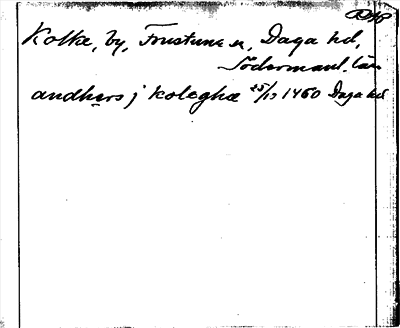 Kolke, by, Frustuna sn, Daga hd,
Södermanl. län
andhers j koleghæ 25/12 1460 Daga hd